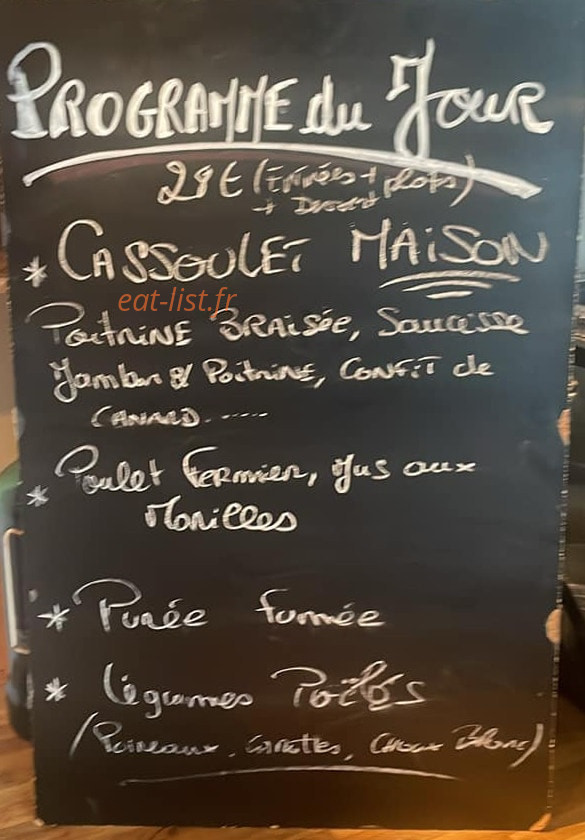 PROGRAMME du JOUR
29€ (Entrées + plats
+ Dessert)
* CASSOULET MAISON
eat-list.fr
Poitrine BRAISée, Saucisse
Jambon & Poitrine, CONFIT de
CANARD.......
* Poulet Fermier, Jus aux
Morilles
* Purée fumée
* Légumes Poêlés
(Poireaux, Carottes, Choux Blanc)